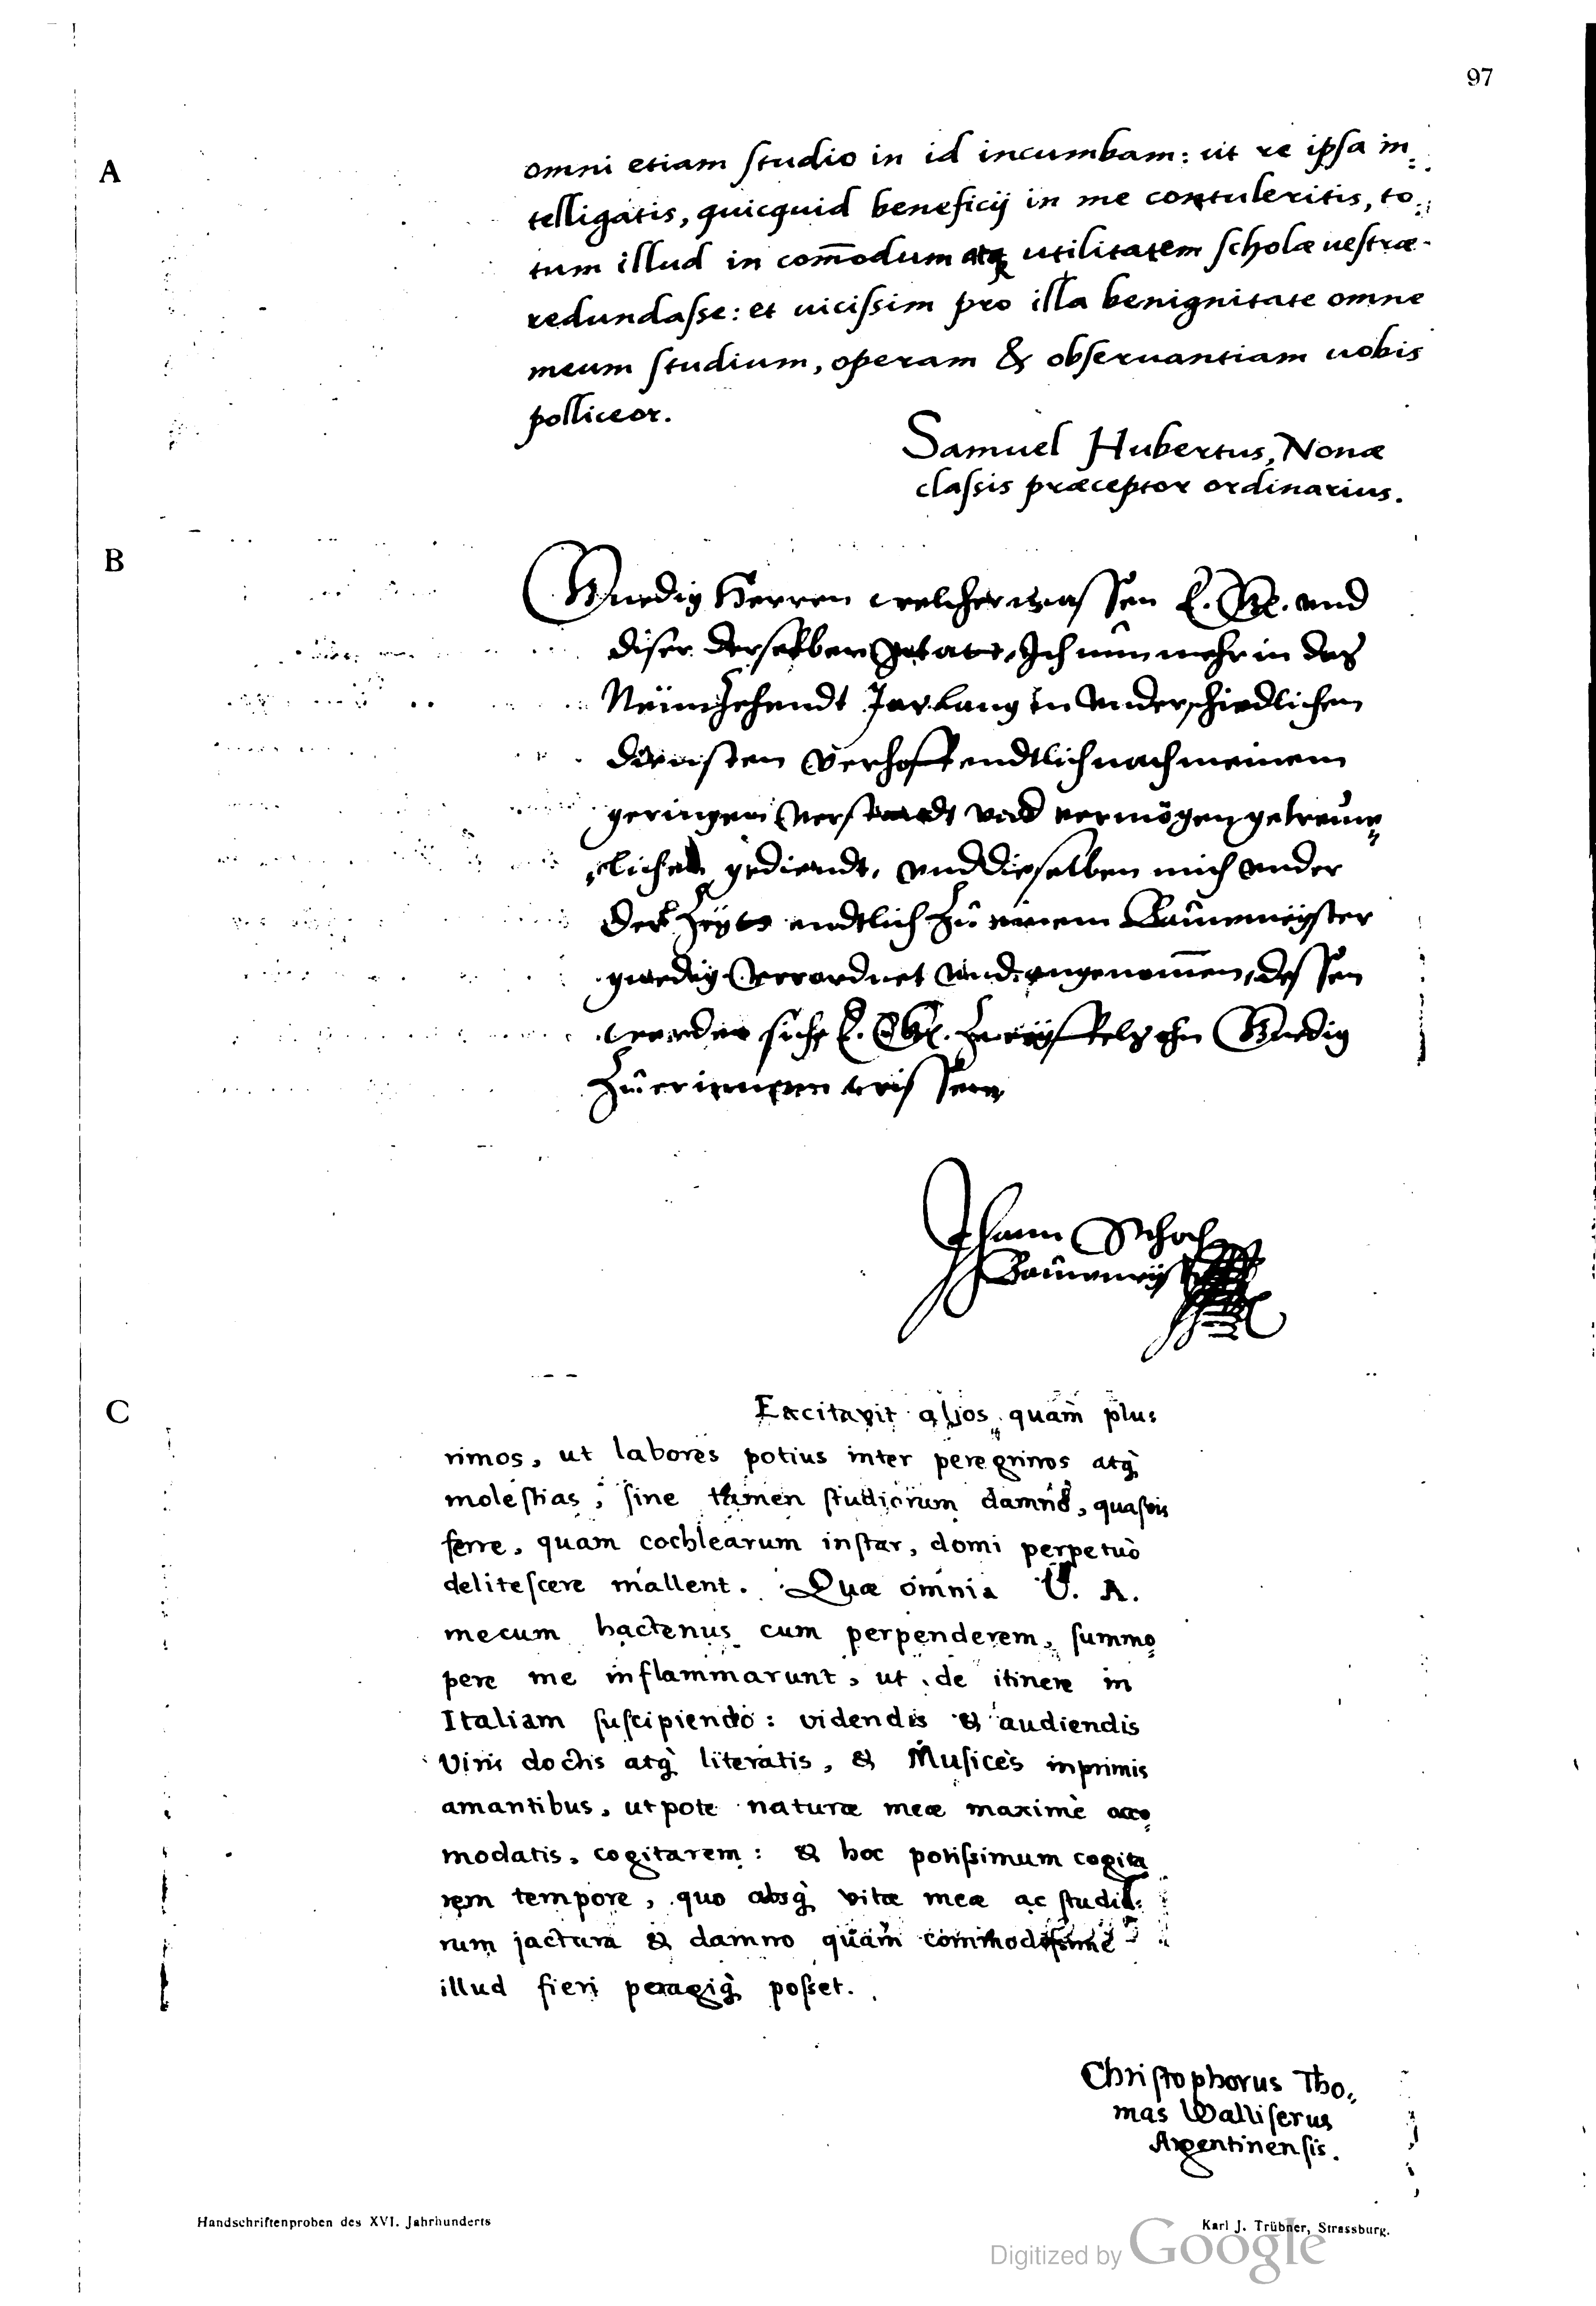 97
A
omni etiam ſtudio in id incumbam: ut re ipſa in=
telligatis, quicquid beneficij in me contuleritis, to=
tum illud in com̄odum atq utilitatem ſcholæ ueſtræ
redundaſse: et uiciſsim pro illa benignitate omne
meum ſtudium, operam & obſeruantiam uobis
polliceor.
Samuel Hubertus, Nonæ
claſsis præceptor ordinarius.
B
Gnedig Herren welchermaſſen E. Gn. vnd
diser derselben Statt, Ich nun mehr in das
Neünzehendt Jar lang in vnderschiedlichen
diensten verhoffendtlich nach meinem
geringen verstandt vnd vermögen getreüw=
lichen gediendt, vnd dieselben mich vnder
der Zeyt endtlich zů einem Bauwmeyster
gnedig verordnet vnd angenom̄en, deſſen
werden sich E. Gn. zweyffels ohn Gnedig
Zůerinnern wiſſen
Johann Schoch
Bauwmeyster
C
Excitavit alios quàm plu=
rimos, ut labores potius inter peregrinos atq̀
moleſtias, ſine tamen ſtudiorum damnô, quaſvis
ferre, quam cochlearum inſtar, domi perpetuò
deliteſcere mallent. Quæ omnia V. A.
mecum hactenus cum perpenderem, ſummo=
pere me inflammarunt, ut de itinere in
Italiam ſuſcipiendo: videndis & audiendis
Viris doctis atq̀ literatis, & Muſices inprimis
amantibus, utpote naturæ meæ maximè acco=
modatis, cogitarem: & hoc potiſsimum cogita
rem tempore, quo absq̀ vitæ meæ ac ſtudio=
rum jactura & damno quàm commodiſsimè
illud fieri peragiq̀ poſset.
Chriſtophorus Tho=
mas Walliſerus
Argentinenſis.
Handschriftenproben des XVI. Jahrhunderts
Karl J. Trübner, Strassburg.
Digitized by Google